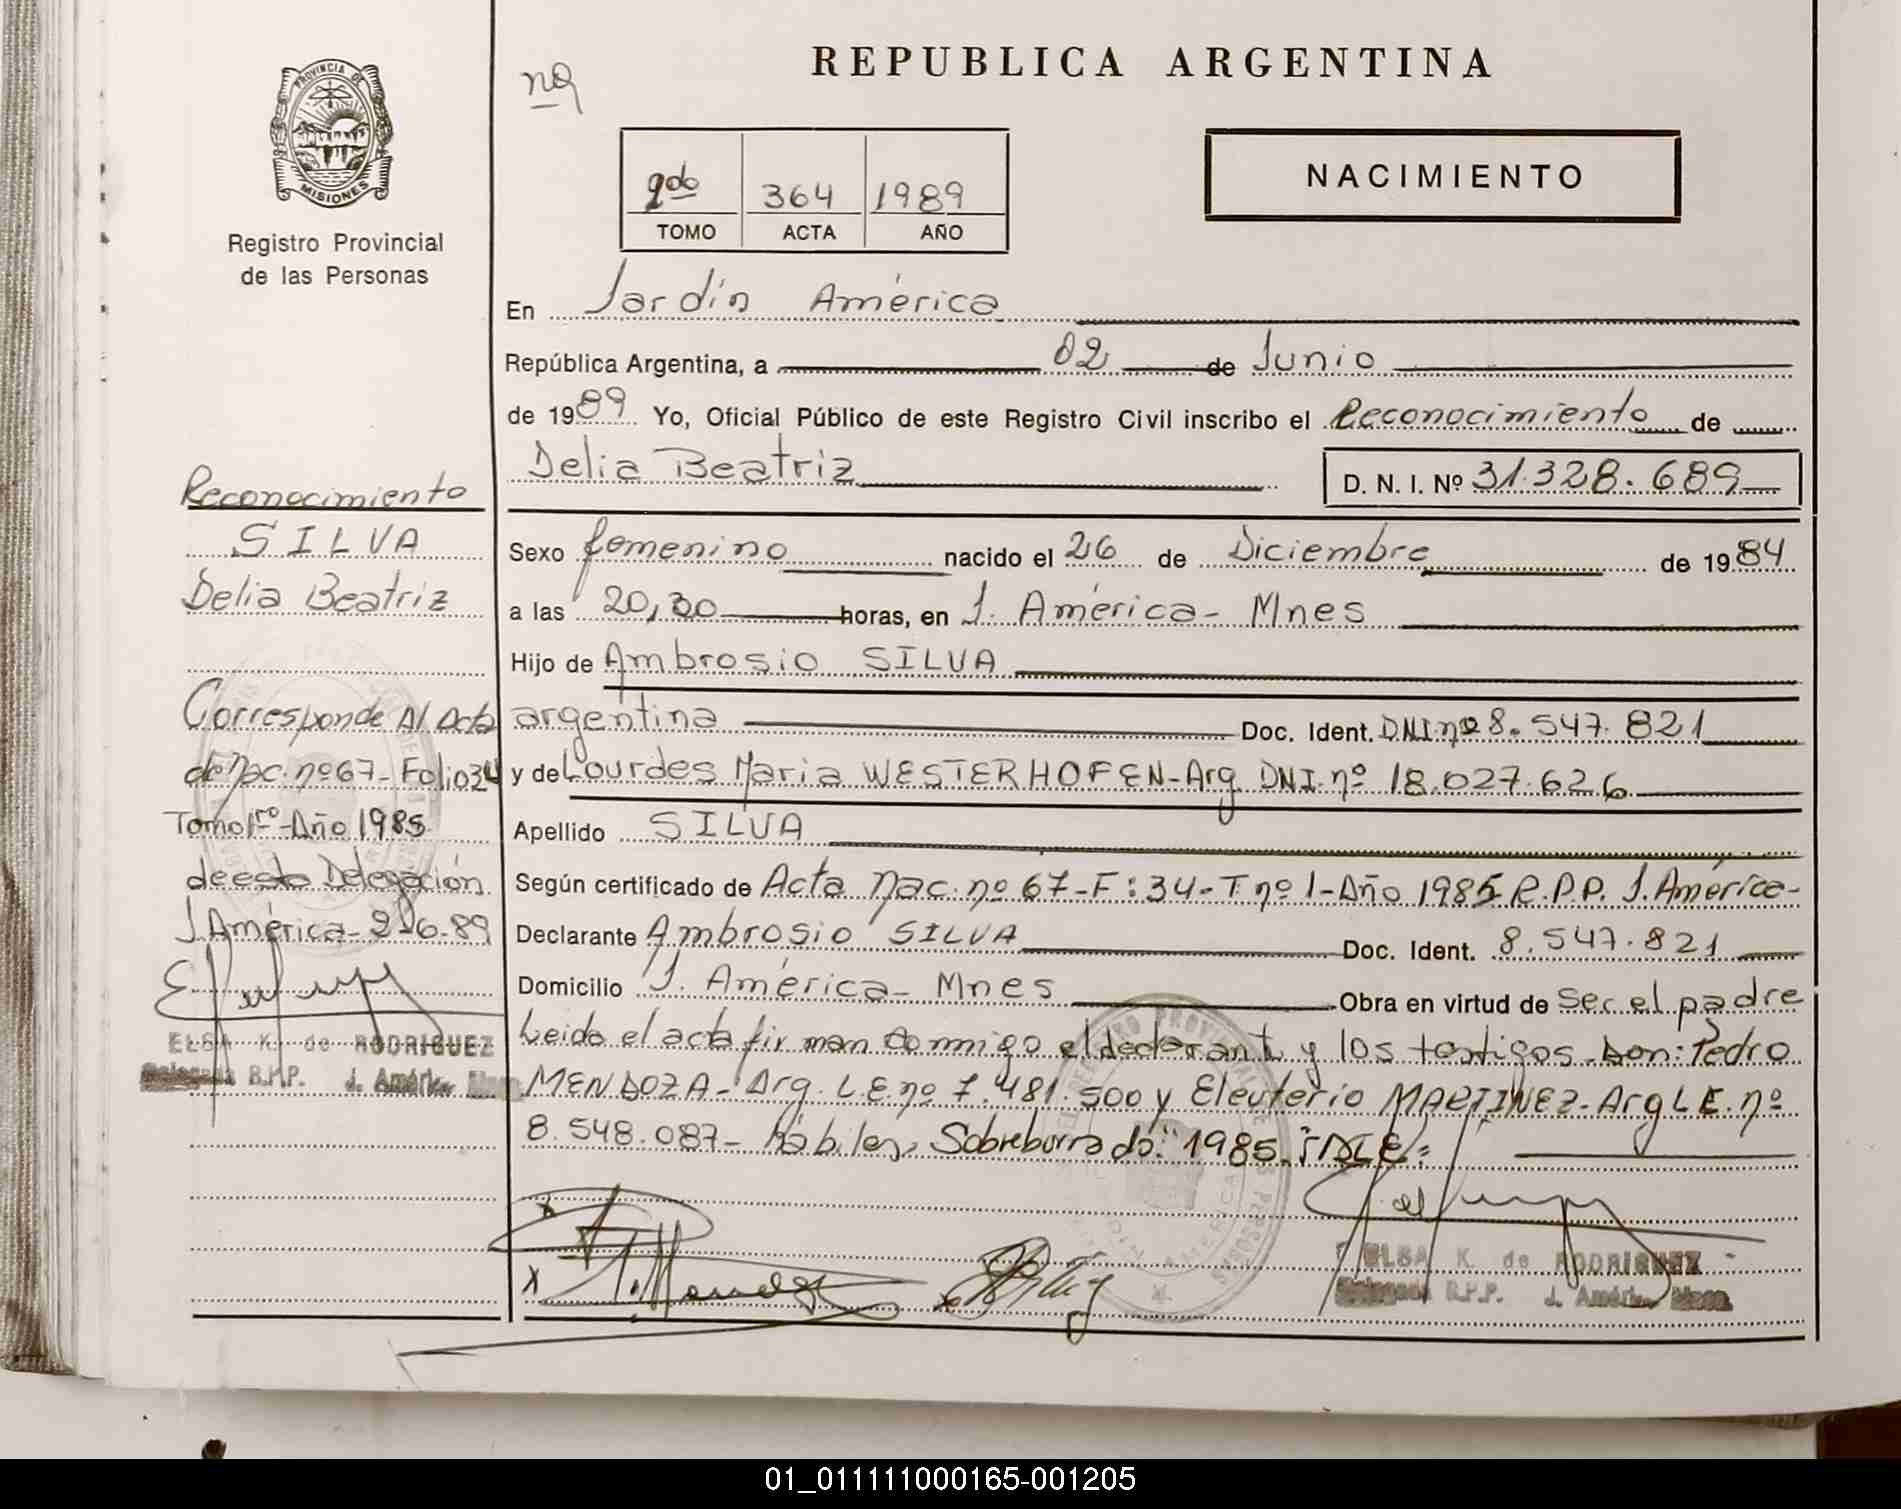 REPUBLICA ARGENTINA
nº
PROVINCIA DE
MISIONES
Registro Provincial
de las Personas
2do 364 1989
TOMO ACTA AÑO
NACIMIENTO
En Jardín América
República Argentina, a 02 de Junio
de 1989 Yo, Oficial Público de este Registro Civil inscribo el Reconocimiento de
Delia Beatriz D. N. I. Nº 31.328.689
Sexo femenino nacido el 26 de Diciembre de 1984
a las 20,30 horas, en J. América - Mnes
Hijo de Ambrosio SILVA
argentina Doc. Ident. DNI nº 8.547.821
y de Lourdes Maria WESTERHOFEN-Arg. DNI. nº 18.027.626
Apellido SILVA
Según certificado de Acta Nac. nº 67-F:34-T nº 1-Año 1985 R.P.P. J. América-
Declarante Ambrosio SILVA Doc. Ident. 8.547.821
Domicilio J. América - Mnes Obra en virtud de ser el padre
Leida el acta firman conmigo el declarante y los testigos Don: Pedro
MENDOZA - Arg. L.E. nº 7.481.500 y Eleuterio MARTINEZ-Arg L.E. nº
8.548.087- Hábiles, Sobreborrado: "1985"
ELSA K. de RODRIGUEZ
Delegada R.P.P. J. América Mnes.
Reconocimiento
SILVA
Delia Beatriz
Corresponde Al Acta
de Nac. nº 67-Folio 34
Tomo 1ro-Año 1985
de esta Delegación.
J. América - 2-6-89
ELSA K. de RODRIGUEZ
Delegada R.P.P. J. América
01_011111000165-001205